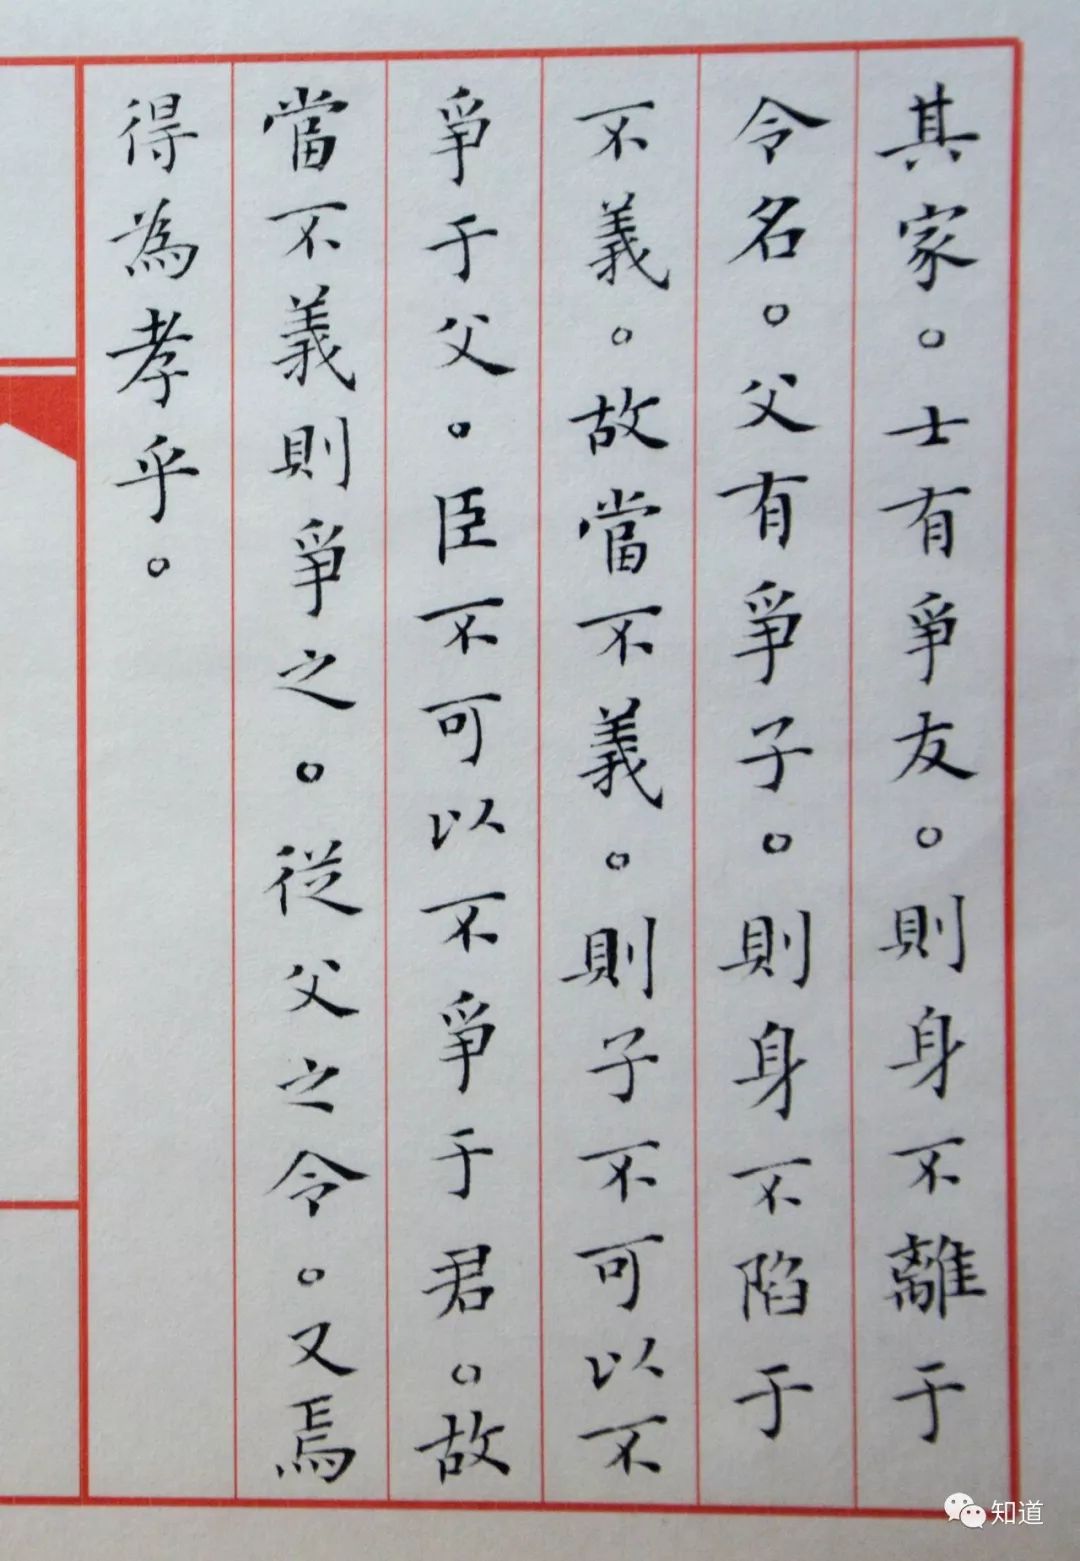 其家。士有爭友。則身不離于
令名。父有爭子。則身不陷于
不義。故當不義。則子不可以不
爭于父。臣不可以不爭于君。故
當不義則爭之。從父之令。又焉
得為孝乎。
知道